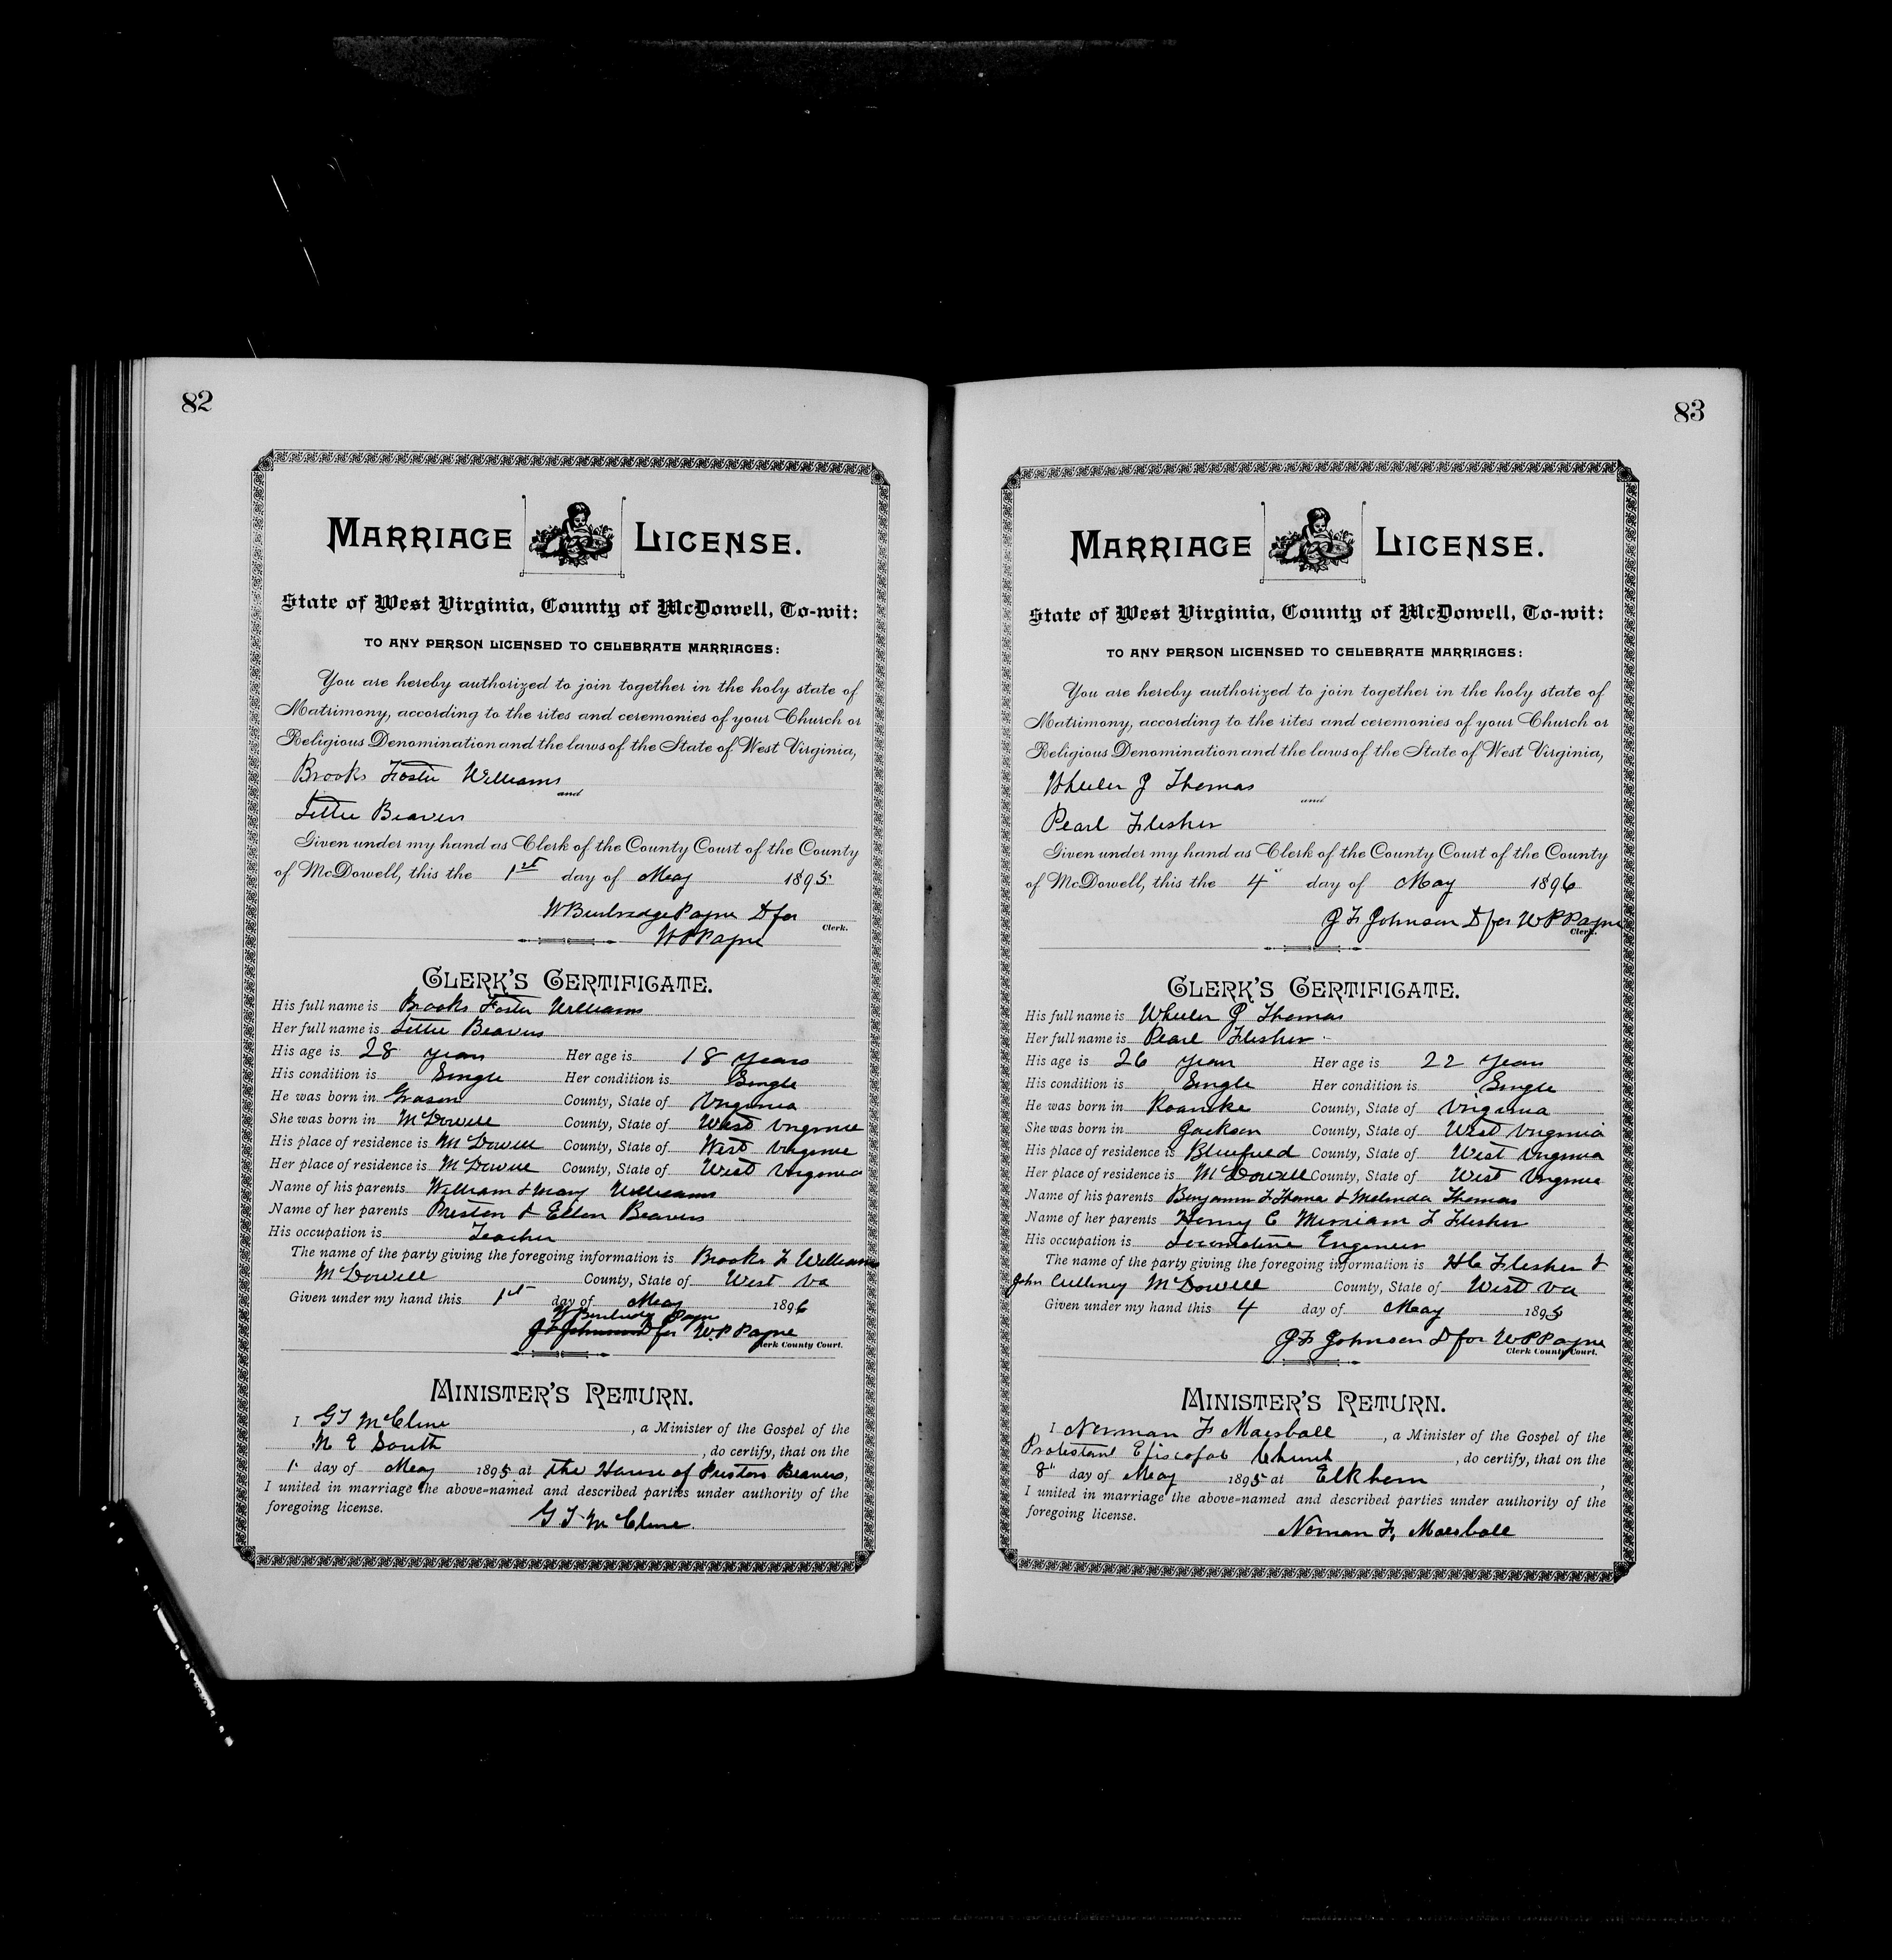 82
MARRIAGE LICENSE.
State of West Virginia, County of McDowell, To-wit:
TO ANY PERSON LICENSED TO CELEBRATE MARRIAGES:
You are hereby authorized to join together in the holy state of
Matrimony, according to the rites and ceremonies of your Church or
Religious Denomination and the laws of the State of West Virginia,
Brooks Foster Williams
and
Lettie Beavers
Given under my hand as Clerk of the County Court of the County
of McDowell, this the 1st day of May 1895
W Burbridge Payne D for
Clerk.
W P Payne
CLERK'S CERTIFICATE.
His full name is Brooks Foster Williams
Her full name is Lettie Beavers
His age is 28 years Her age is 18 years
His condition is Single Her condition is Single
He was born in Grason County, State of Virginia
She was born in McDowell County, State of West Virginia
His place of residence is McDowell County, State of West Virginia
Her place of residence is McDowell County, State of West Virginia
Name of his parents William & Mary Williams
Name of her parents Preston & Ellen Beavers
His occupation is Teacher
The name of the party giving the foregoing information is Brooks F Williams
McDowell County, State of West Va
Given under my hand this 1st day of May 1896
W Burbridge Payne
J F Johnson D for W. P Payne
Clerk County Court.
MINISTER'S RETURN.
I G T McClure, a Minister of the Gospel of the
M E South, do certify, that on the
1 day of May 1895 at the House of Preston Beavers,
I united in marriage the above-named and described parties under authority of the
foregoing license.
G T McClure.
83
MARRIAGE LICENSE.
State of West Virginia, County of McDowell, To-wit:
TO ANY PERSON LICENSED TO CELEBRATE MARRIAGES:
You are hereby authorized to join together in the holy state of
Matrimony, according to the rites and ceremonies of your Church or
Religious Denomination and the laws of the State of West Virginia,
Wheeler J Thomas
and
Pearl Flesher
Given under my hand as Clerk of the County Court of the County
of McDowell, this the 4" day of May 1896
J F Johnson D for W P Payne
Clerk.
CLERK'S CERTIFICATE.
His full name is Wheeler J Thomas
Her full name is Pearl Flesher
His age is 26 years Her age is 22 years
His condition is Single Her condition is Single
He was born in Roanoke County, State of Virginia
She was born in Jackson County, State of West Virginia
His place of residence is Bluefield County, State of West Virginia
Her place of residence is McDowell County, State of West Virginia
Name of his parents Benjamin F Thomas & Melinda Thomas
Name of her parents Henry C Mirriam F Flesher
His occupation is Locomotive Engineer
The name of the party giving the foregoing information is H C Flesher &
John Culleney McDowell County, State of West Va
Given under my hand this 4 day of May 1895
J F Johnson D for W P Payne
Clerk County Court.
MINISTER'S RETURN.
I Norman F Marshall, a Minister of the Gospel of the
Protestant Episcopal Church, do certify, that on the
8" day of May 1895 at Elkhorn,
I united in marriage the above-named and described parties under authority of the
foregoing license.
Norman F, Marshall